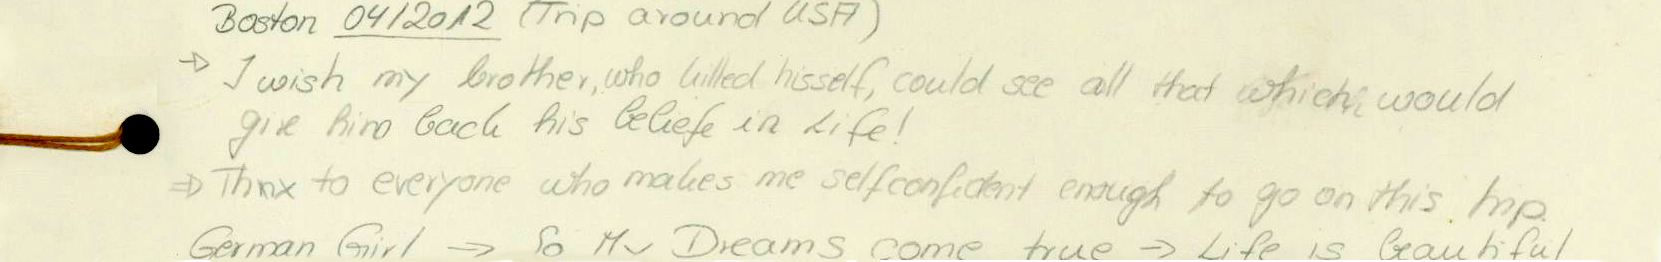 Boston 04/2012 (Trip around USA)
→ I wish my brother, who killed hisself, could see all that which would
give him back his beliefe in Life!
⇒ Thnx to everyone who makes me selfconfident enough to go on this trip.
German Girl → So My Dreams come true → Life is beautiful